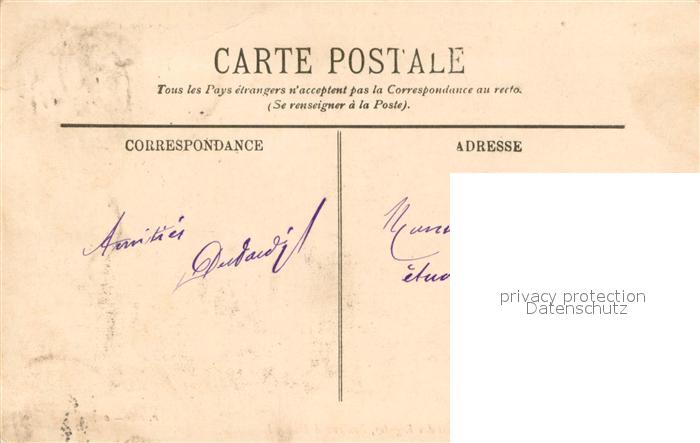 CARTE POSTALE
Tous les Pays étrangers n'acceptent pas la Correspondance au recto.
(Se renseigner à la Poste).
CORRESPONDANCE
ADRESSE
Amitiés
privacy protection
Datenschutz